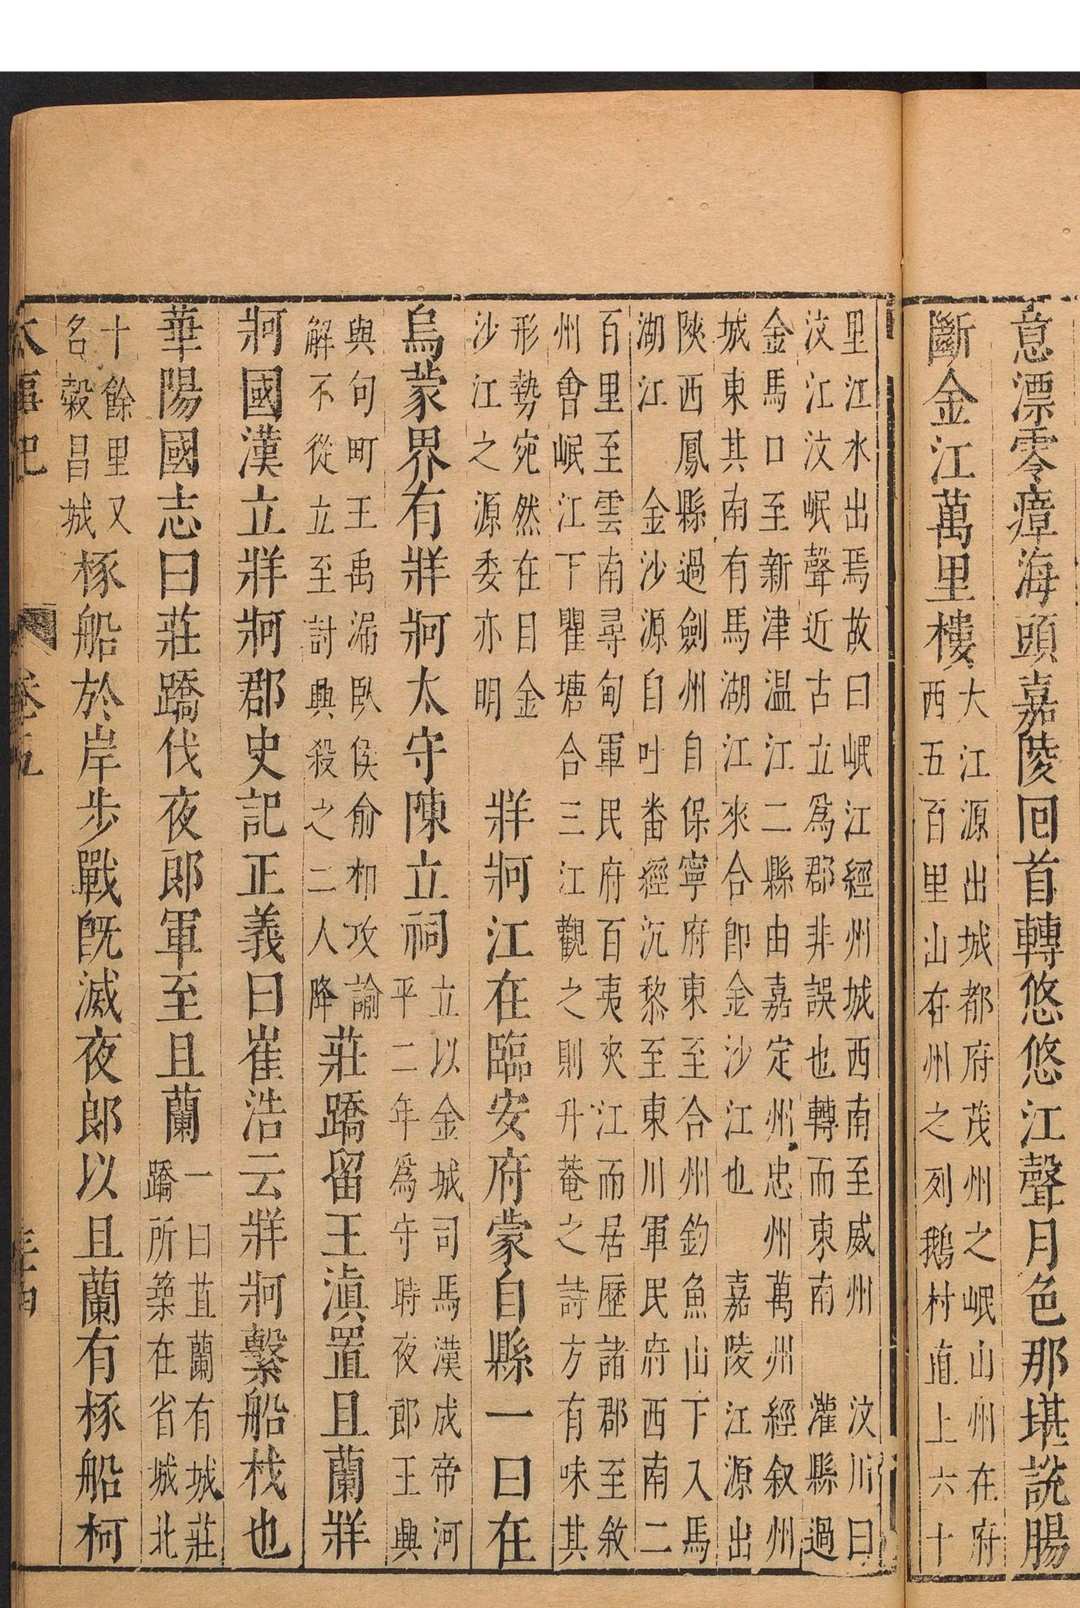 意漂零瘴海頭嘉陵回首轉悠悠江聲月色那堪說腸
斷金江萬里樓
大江源出城都府茂州之岷山州在府
西五百里山在州之列鵝村直上六十
里江水出焉故曰岷江經州城西南至威州 汶川曰
汶江汶岷聲近古立為郡非誤也轉而東南 灌縣過
金馬口至新津溫江二縣由嘉定州忠州萬州經叙州
城東其南有馬湖江來合卽金沙江也 嘉陵江源出
陝西鳳縣過劍州自保寧府東至合州釣魚山下入馬
湖江 金沙源自吐番經沉黎至東川軍民府西南二
百里至雲南尋甸軍民府百夷夾江而居歷諸郡至敘
州會岷江下瞿塘合三江觀之則升菴之詩方有味其
形勢宛然在目金
沙江之源委亦明
牂牁江在臨安府蒙自縣一曰在
烏蒙界有牂牁太守陳立祠
立以金城司馬漢成帝河
平二年為守時夜郎王興
與句町王禹漏臥侯俞相攻諭
解不從立至討興殺之二人降
莊蹻留王滇置且蘭牂
牁國漢立牂牁郡史記正義曰崔浩云牂牁繫船杙也
華陽國志曰莊蹻伐夜郎軍至且蘭
一曰苴蘭有城莊
蹻所築在省城北
十餘里又
名穀昌城
椓船於岸步戰旣滅夜郎以且蘭有椓船柯
卷五